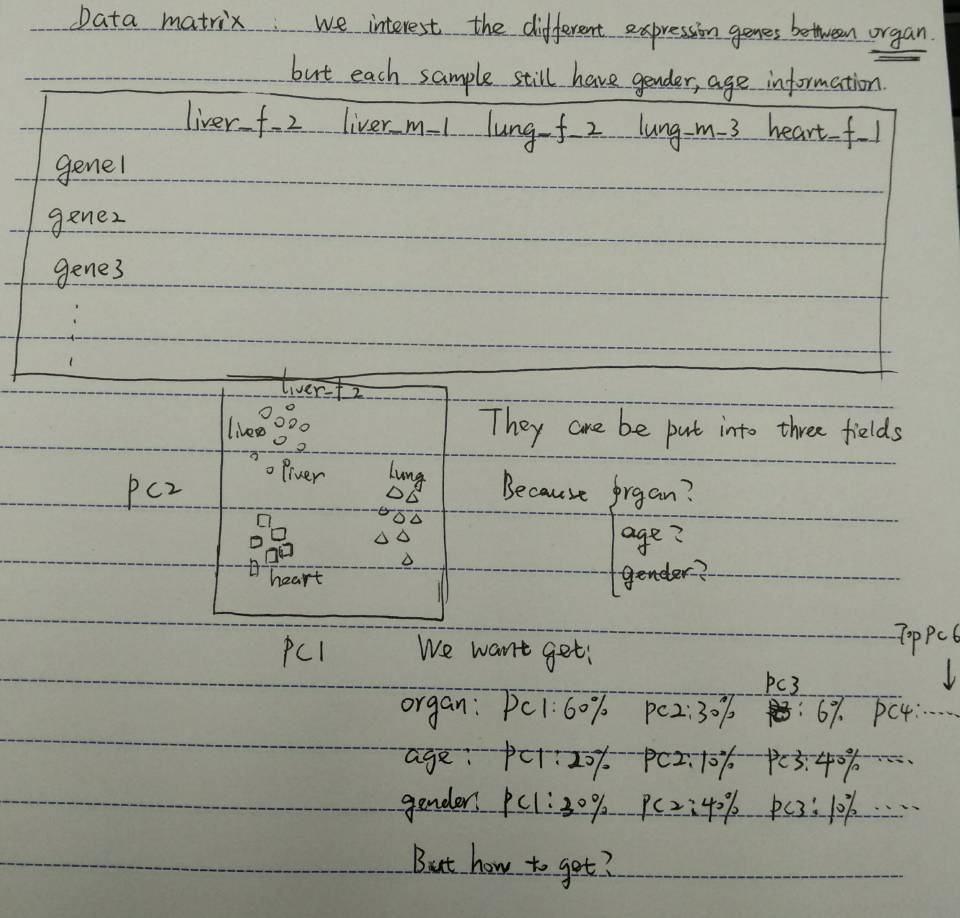 Data matrix : we interest the different expression genes between organ.
but each sample still have gender, age information.
liver_f_2 liver_m_1 lung_f_2 lung_m_3 heart_f_1
gene1
gene2
gene3
liver_f_2
liver
liver
lung
heart
PC2
PC1
They are be put into three fields
Because organ?
age?
gender?
We want get:
Top PC 6
organ: PC1:60% PC2:30% PC3: 6% PC4:......
age: PC1:20% PC2:10% PC3:40% ....
gender: PC1:20% PC2:40% PC3:10% .....
But how to get?